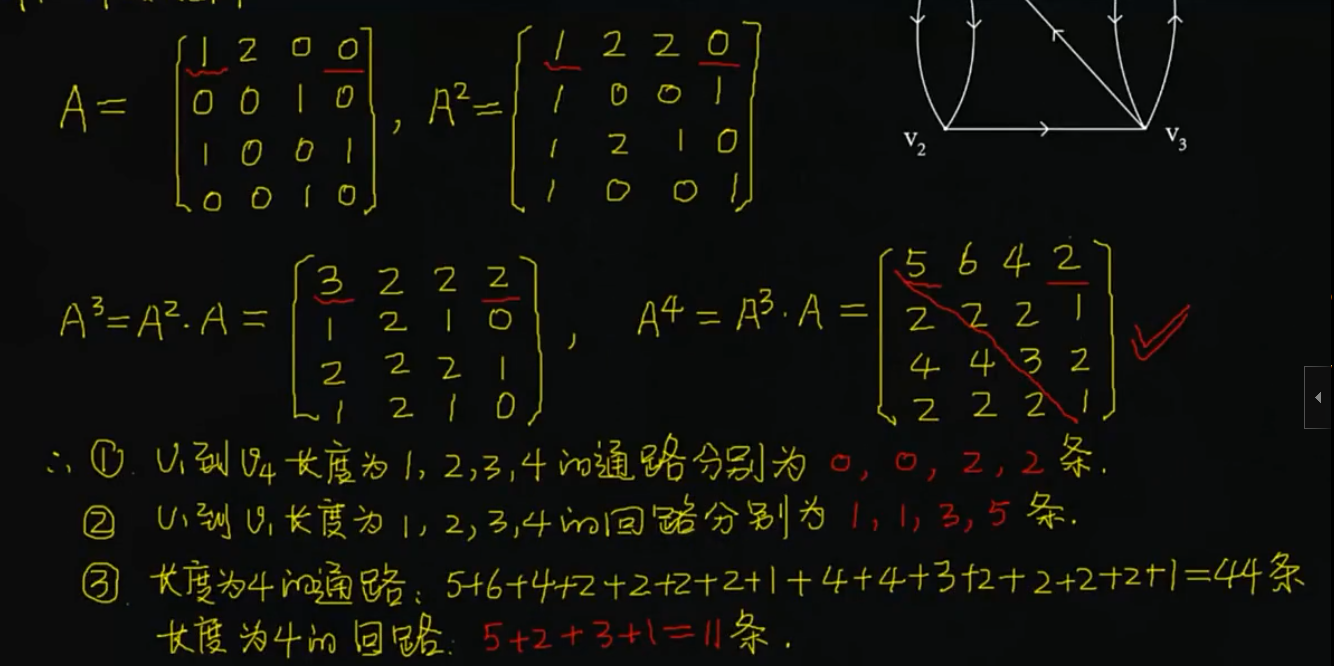 A = [1 2 0 0; 0 0 1 0; 1 0 0 1; 0 0 1 0], A² = [1 2 2 0; 1 0 0 1; 1 2 1 0; 1 0 0 1]
v₂ v₃
A³ = A²·A = [3 2 2 2; 1 2 1 0; 2 2 2 1; 1 2 1 0], A⁴ = A³·A = [5 6 4 2; 2 2 2 1; 4 4 3 2; 2 2 2 1] ✓
∴ ①. v₁到v₄长度为1,2,3,4的通路分别为 0, 0, 2, 2 条.
② v₁到v₁长度为1,2,3,4的回路分别为 1, 1, 3, 5 条.
③ 长度为4的通路: 5+6+4+2+2+2+2+1+4+4+3+2+2+2+2+1=44条
长度为4的回路: 5+2+3+1=11条.